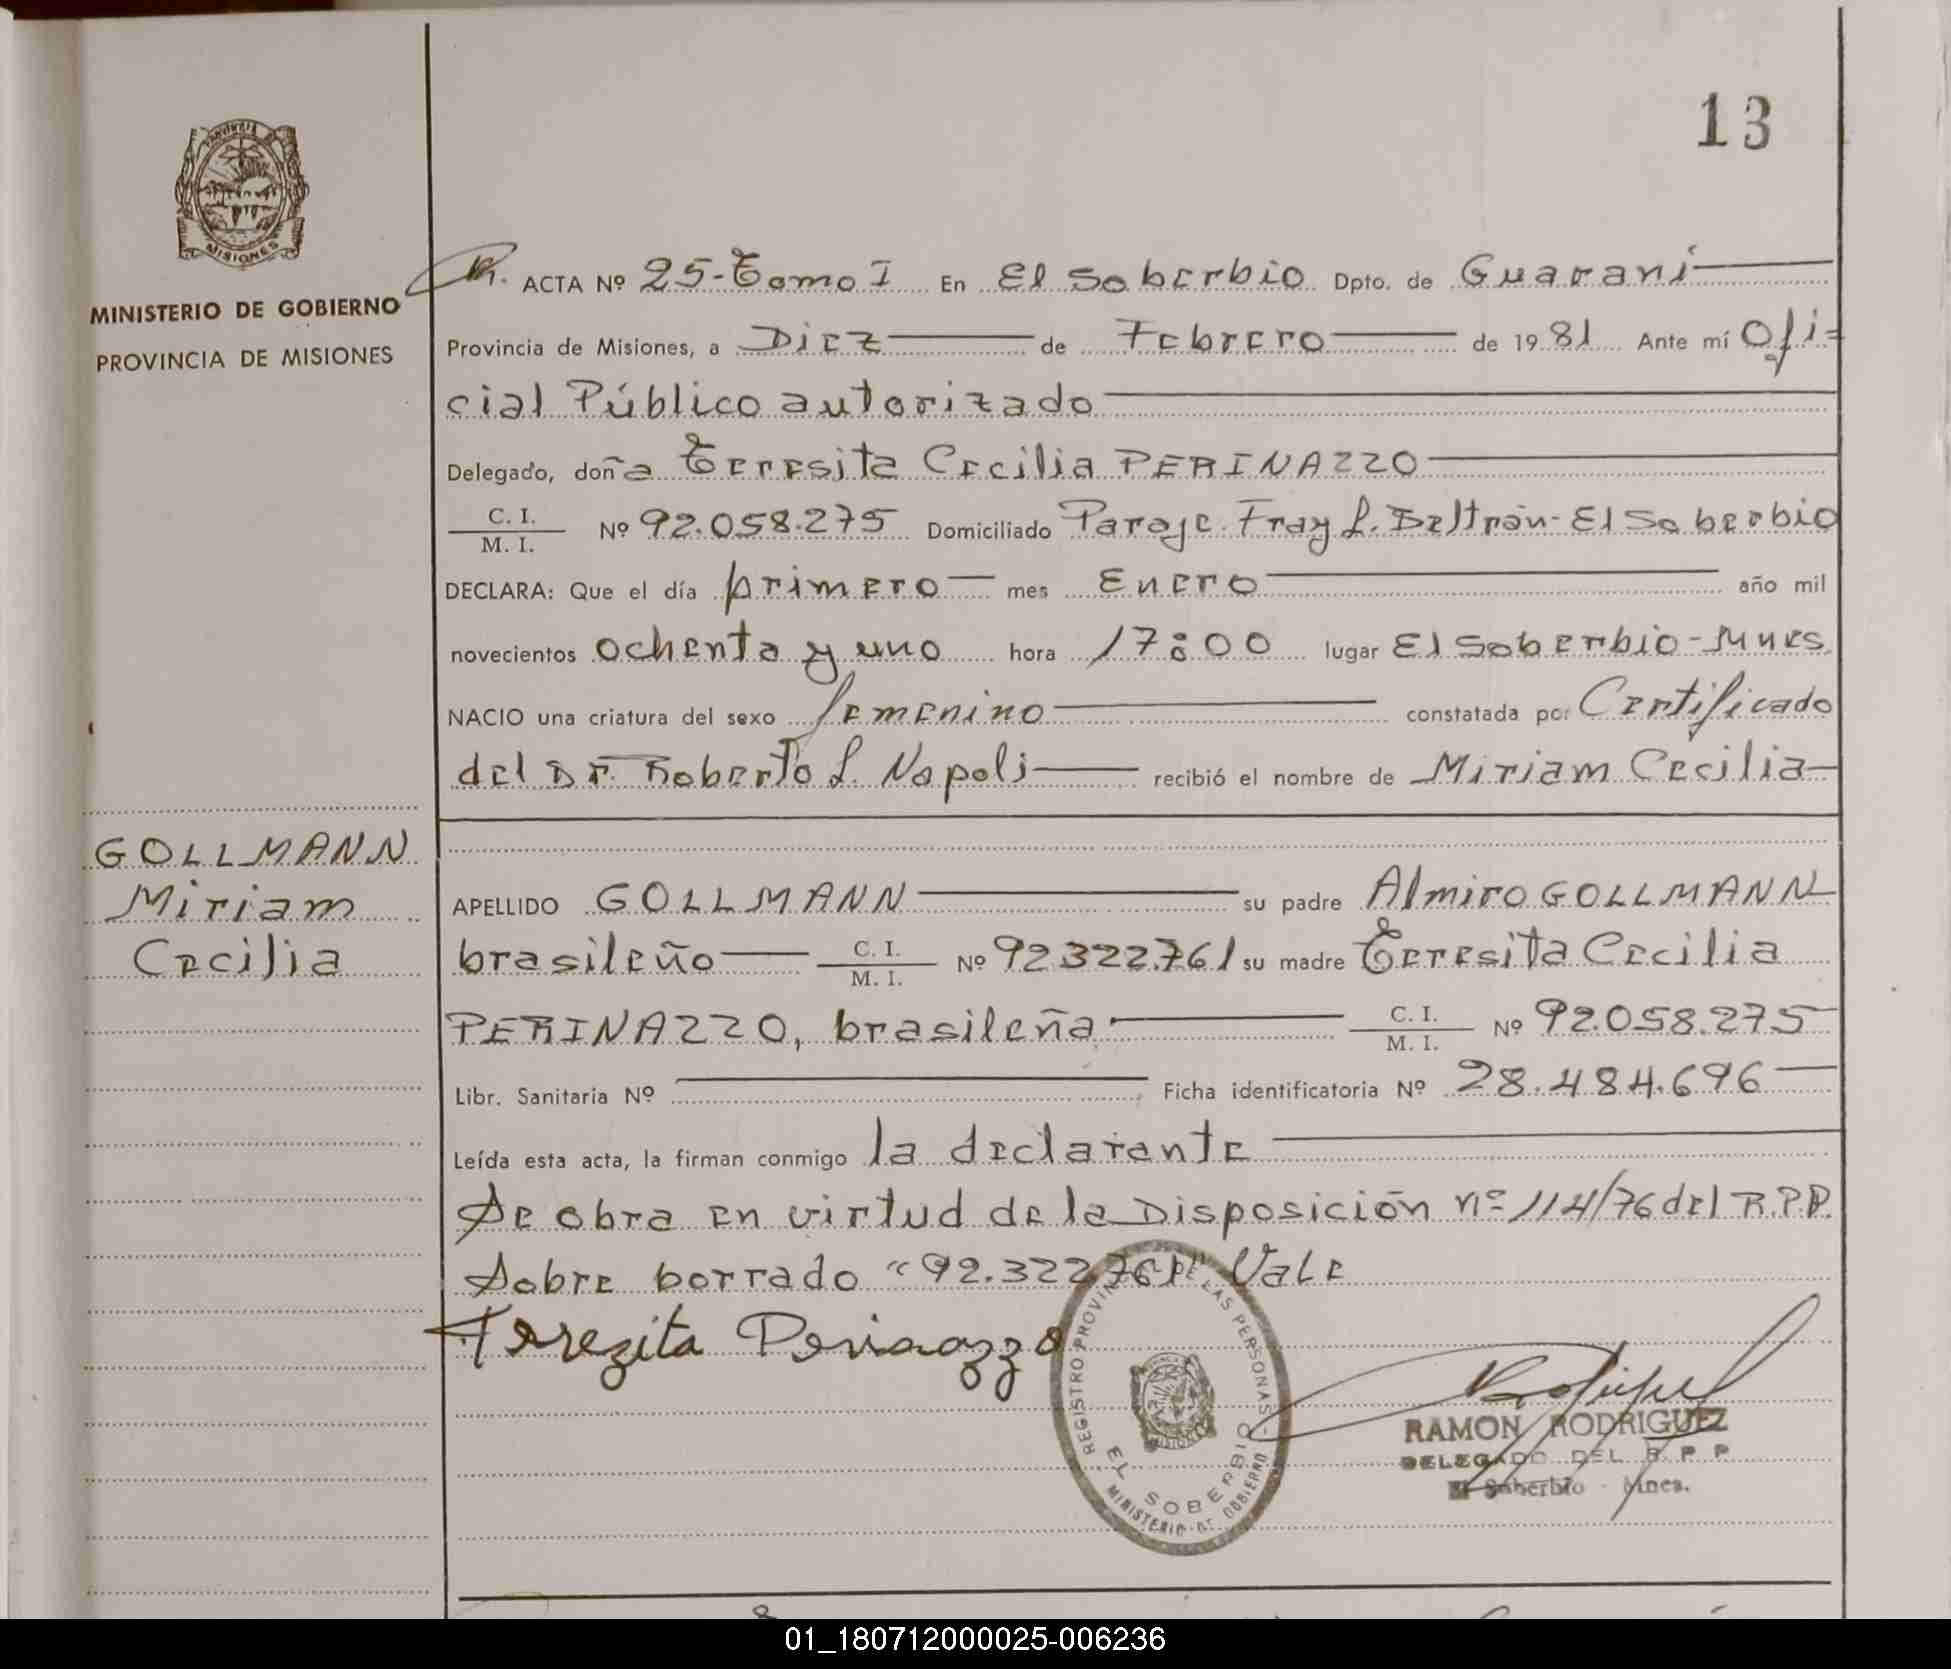 13
PROVINCIA
MISIONES
MINISTERIO DE GOBIERNO
PROVINCIA DE MISIONES
GOLLMANN
Miriam
Cecilia
ACTA Nº 25-Tomo I En El Soberbio Dpto. de Guaraní
Provincia de Misiones, a Diez de Febrero de 1981 Ante mí Ofi=
cial Público autorizado
Delegado, doña Teresita Cecilia PERINAZZO
C. I.
M. I. Nº 92.058.275 Domiciliado Paraje Fray L. Beltrán-El Soberbio
DECLARA: Que el día primero mes Enero año mil
novecientos ochenta y uno hora 17:00 lugar El Soberbio-Mnes
NACIO una criatura del sexo femenino constatada por Certificado
del Dr. Roberto L. Napoli recibió el nombre de Miriam Cecilia
APELLIDO GOLLMANN su padre Almiro GOLLMANN
brasileño C. I.
M. I. Nº 92.322.761 su madre Teresita Cecilia
PERINAZZO, brasileña C. I.
M. I. Nº 92.058.275
Libr. Sanitaria Nº Ficha identificatoria Nº 28.484.696
Leída esta acta, la firman conmigo la declarante
Se obra en virtud de la Disposición nº 114/76 del R.P.P.
Sobre borrado "92.322.761" Vale
Terezita Perinazzo
REGISTRO PROVINCIAL DE LAS PERSONAS
EL SOBERBIO
MINISTERIO DE GOBIERNO
MISIONES
RAMON RODRIGUEZ
DELEGADO DEL R. P. P.
El Soberbio - Mnes.
01_180712000025-006236